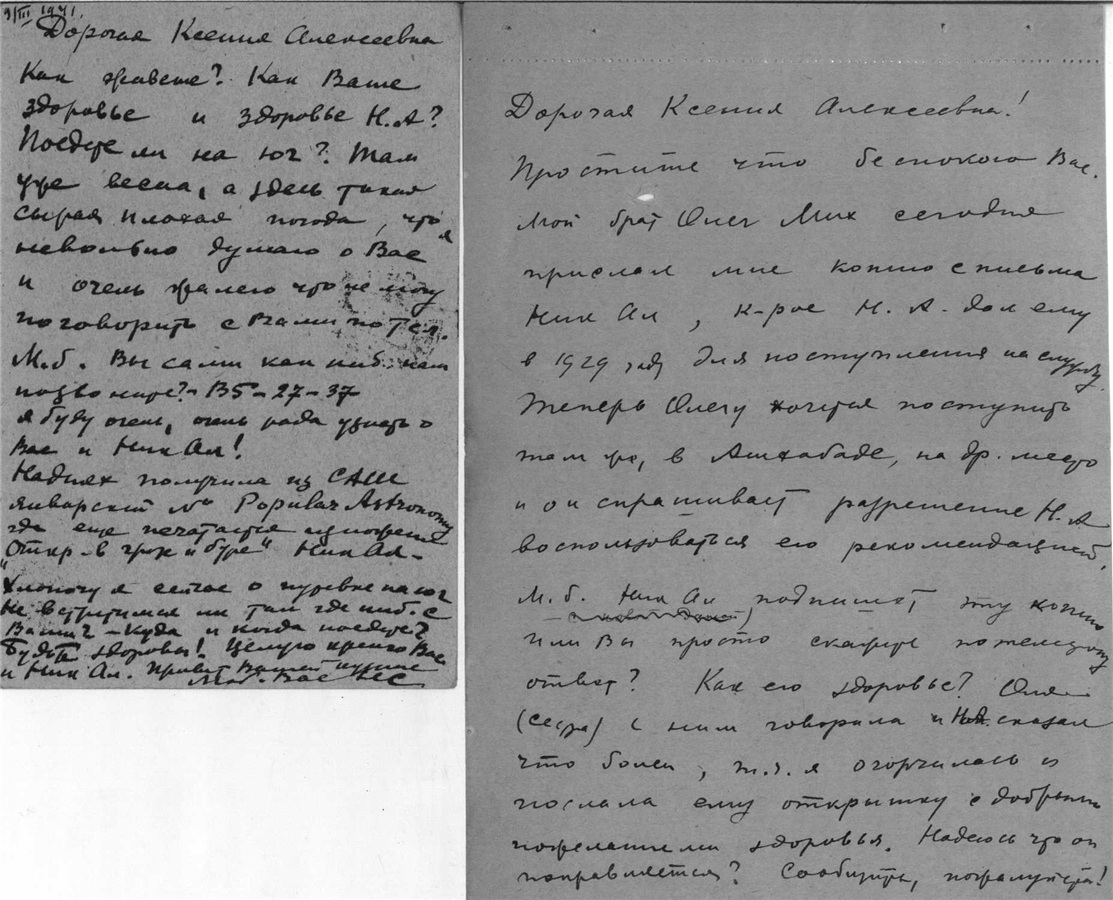 9/III 1941.
Дорогая Ксения Алексеевна
Как живете? Как Ваше
здоровье и здоровье Н.А?
Поедете ли на юг? Там
уже весна, а здесь такая
сырая плохая погода, что я
невольно думаю о Вас
и очень жалею что не могу
поговорить с Вами по тел.
М.б. Вы сами как ниб. нам
позвоните? – В5–27–37
Я буду очень, очень рада узнать о
Вас и Ник Ал!
На днях получила из САШ
январский № Popular Astronomy
где еще печатается
Откр-в грозе и буре" Ник Ал –
Хлопочу я сейчас о путевке на юг
Не встретимся ли там где ниб. с
Вами? – Куда и когда поедете?
Будьте здоровы! Целую крепко Вас
и Ник Ал. Привет Вашей
Люб. Вас
Дорогая Ксения Алексеевна!
Простите что беспокою Вас.
Мой брат Олег Мих сегодня
прислал мне копию с письма
Ник Ал, к-рое Н.А. дал ему
в 1929 году для поступления на службу.
Теперь Олегу хочется поступить
там же, в Ашхабаде, на др. место
и он спрашивает разрешение Н.А
воспользоваться его рекомендацией.
М.б. Ник Ал подпишет эту копию
или Вы просто скажете по телефону
ответ? Как его здоровье? Оля
(сестра) с ним говорила и Н.А. сказал
что болен, т.ч. я огорчилась и
послала ему открытку с добрыми
пожеланиями здоровья. Надеюсь что он
поправляется? Сообщите, пожалуйста!